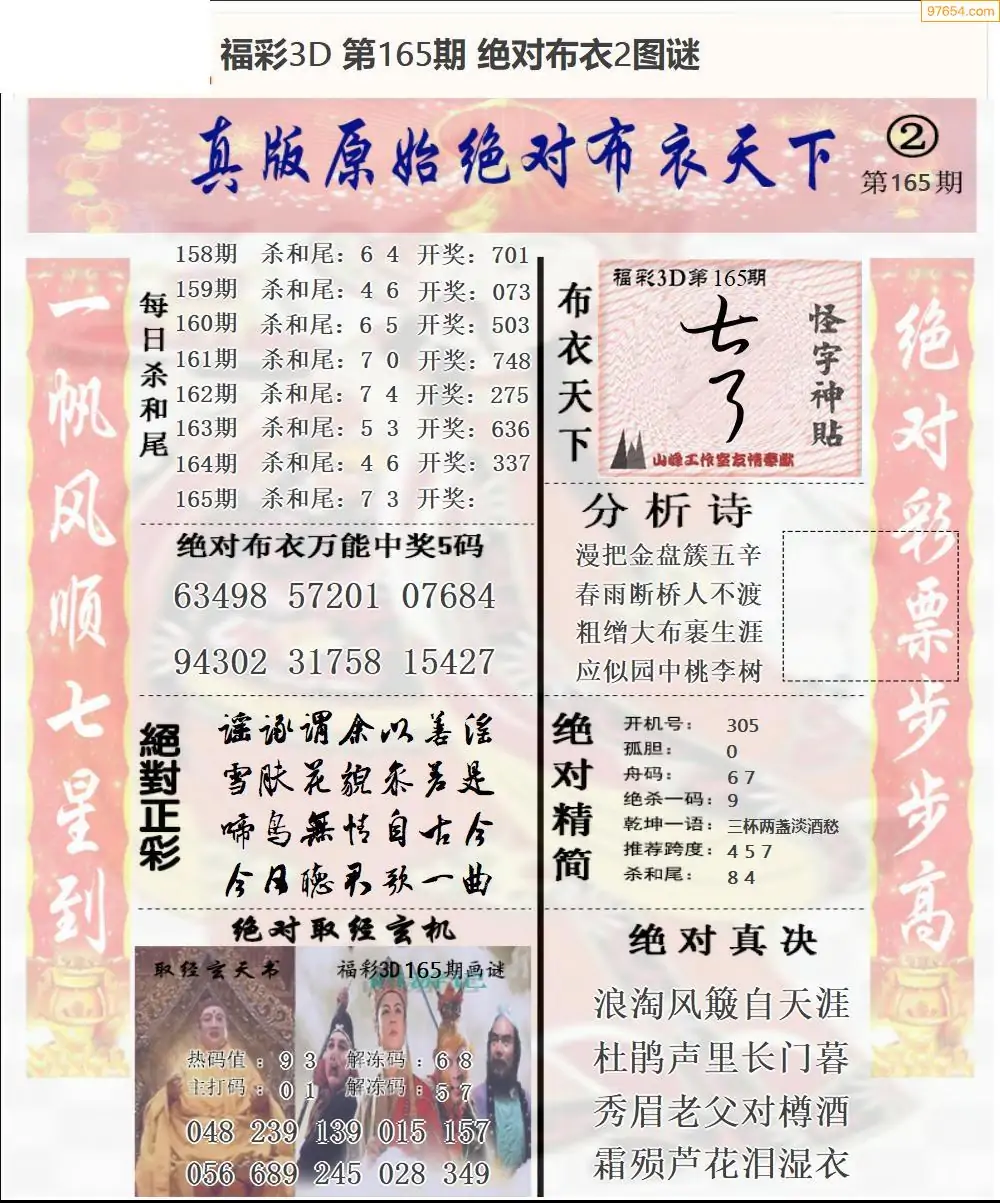 97654.com
福彩3D 第165期 绝对布衣2图谜
真版原始绝对布衣天下
②
第165期
一帆风顺七星到
每日杀和尾
158期 杀和尾：6 4 开奖：701
159期 杀和尾：4 6 开奖：073
160期 杀和尾：6 5 开奖：503
161期 杀和尾：7 0 开奖：748
162期 杀和尾：7 4 开奖：275
163期 杀和尾：5 3 开奖：636
164期 杀和尾：4 6 开奖：337
165期 杀和尾：7 3 开奖：
绝对布衣万能中奖5码
63498 57201 07684
94302 31758 15427
絕對正彩
谣诼谓余以善淫
雪肤花貌参差是
啼鸟無情自古今
今日聴君歌一曲
绝对取经玄机
取经玄天书
福彩3D165期画谜
热码值：9 3 解冻码：6 8
主打码：0 1 解冻码：5 7
048 239 139 015 157
056 689 245 028 349
布衣天下
福彩3D第165期
怪字神貼
山峰工作室友情奉献
分析诗
漫把金盘簇五辛
春雨断桥人不渡
粗缯大布裹生涯
应似园中桃李树
绝对精简
开机号：305
孤胆：0
舟码：6 7
绝杀一码：9
乾坤一语：三杯两盏淡酒愁
推荐跨度：4 5 7
杀和尾：8 4
绝对真决
浪淘风簸自天涯
杜鹃声里长门暮
秀眉老父对樽酒
霜殒芦花泪湿衣
绝对彩票步步高